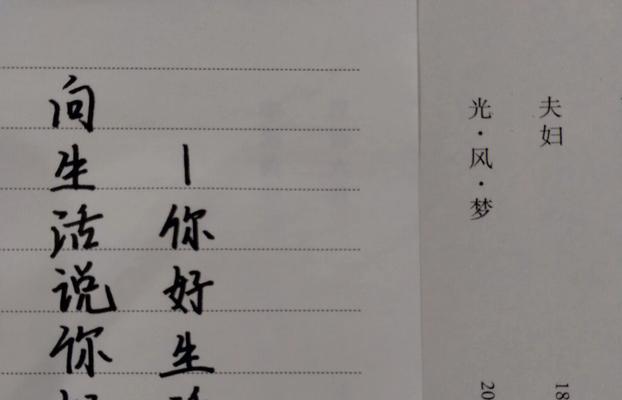 夫妇
18
光·风·梦
20
｜你好生
向生活说你